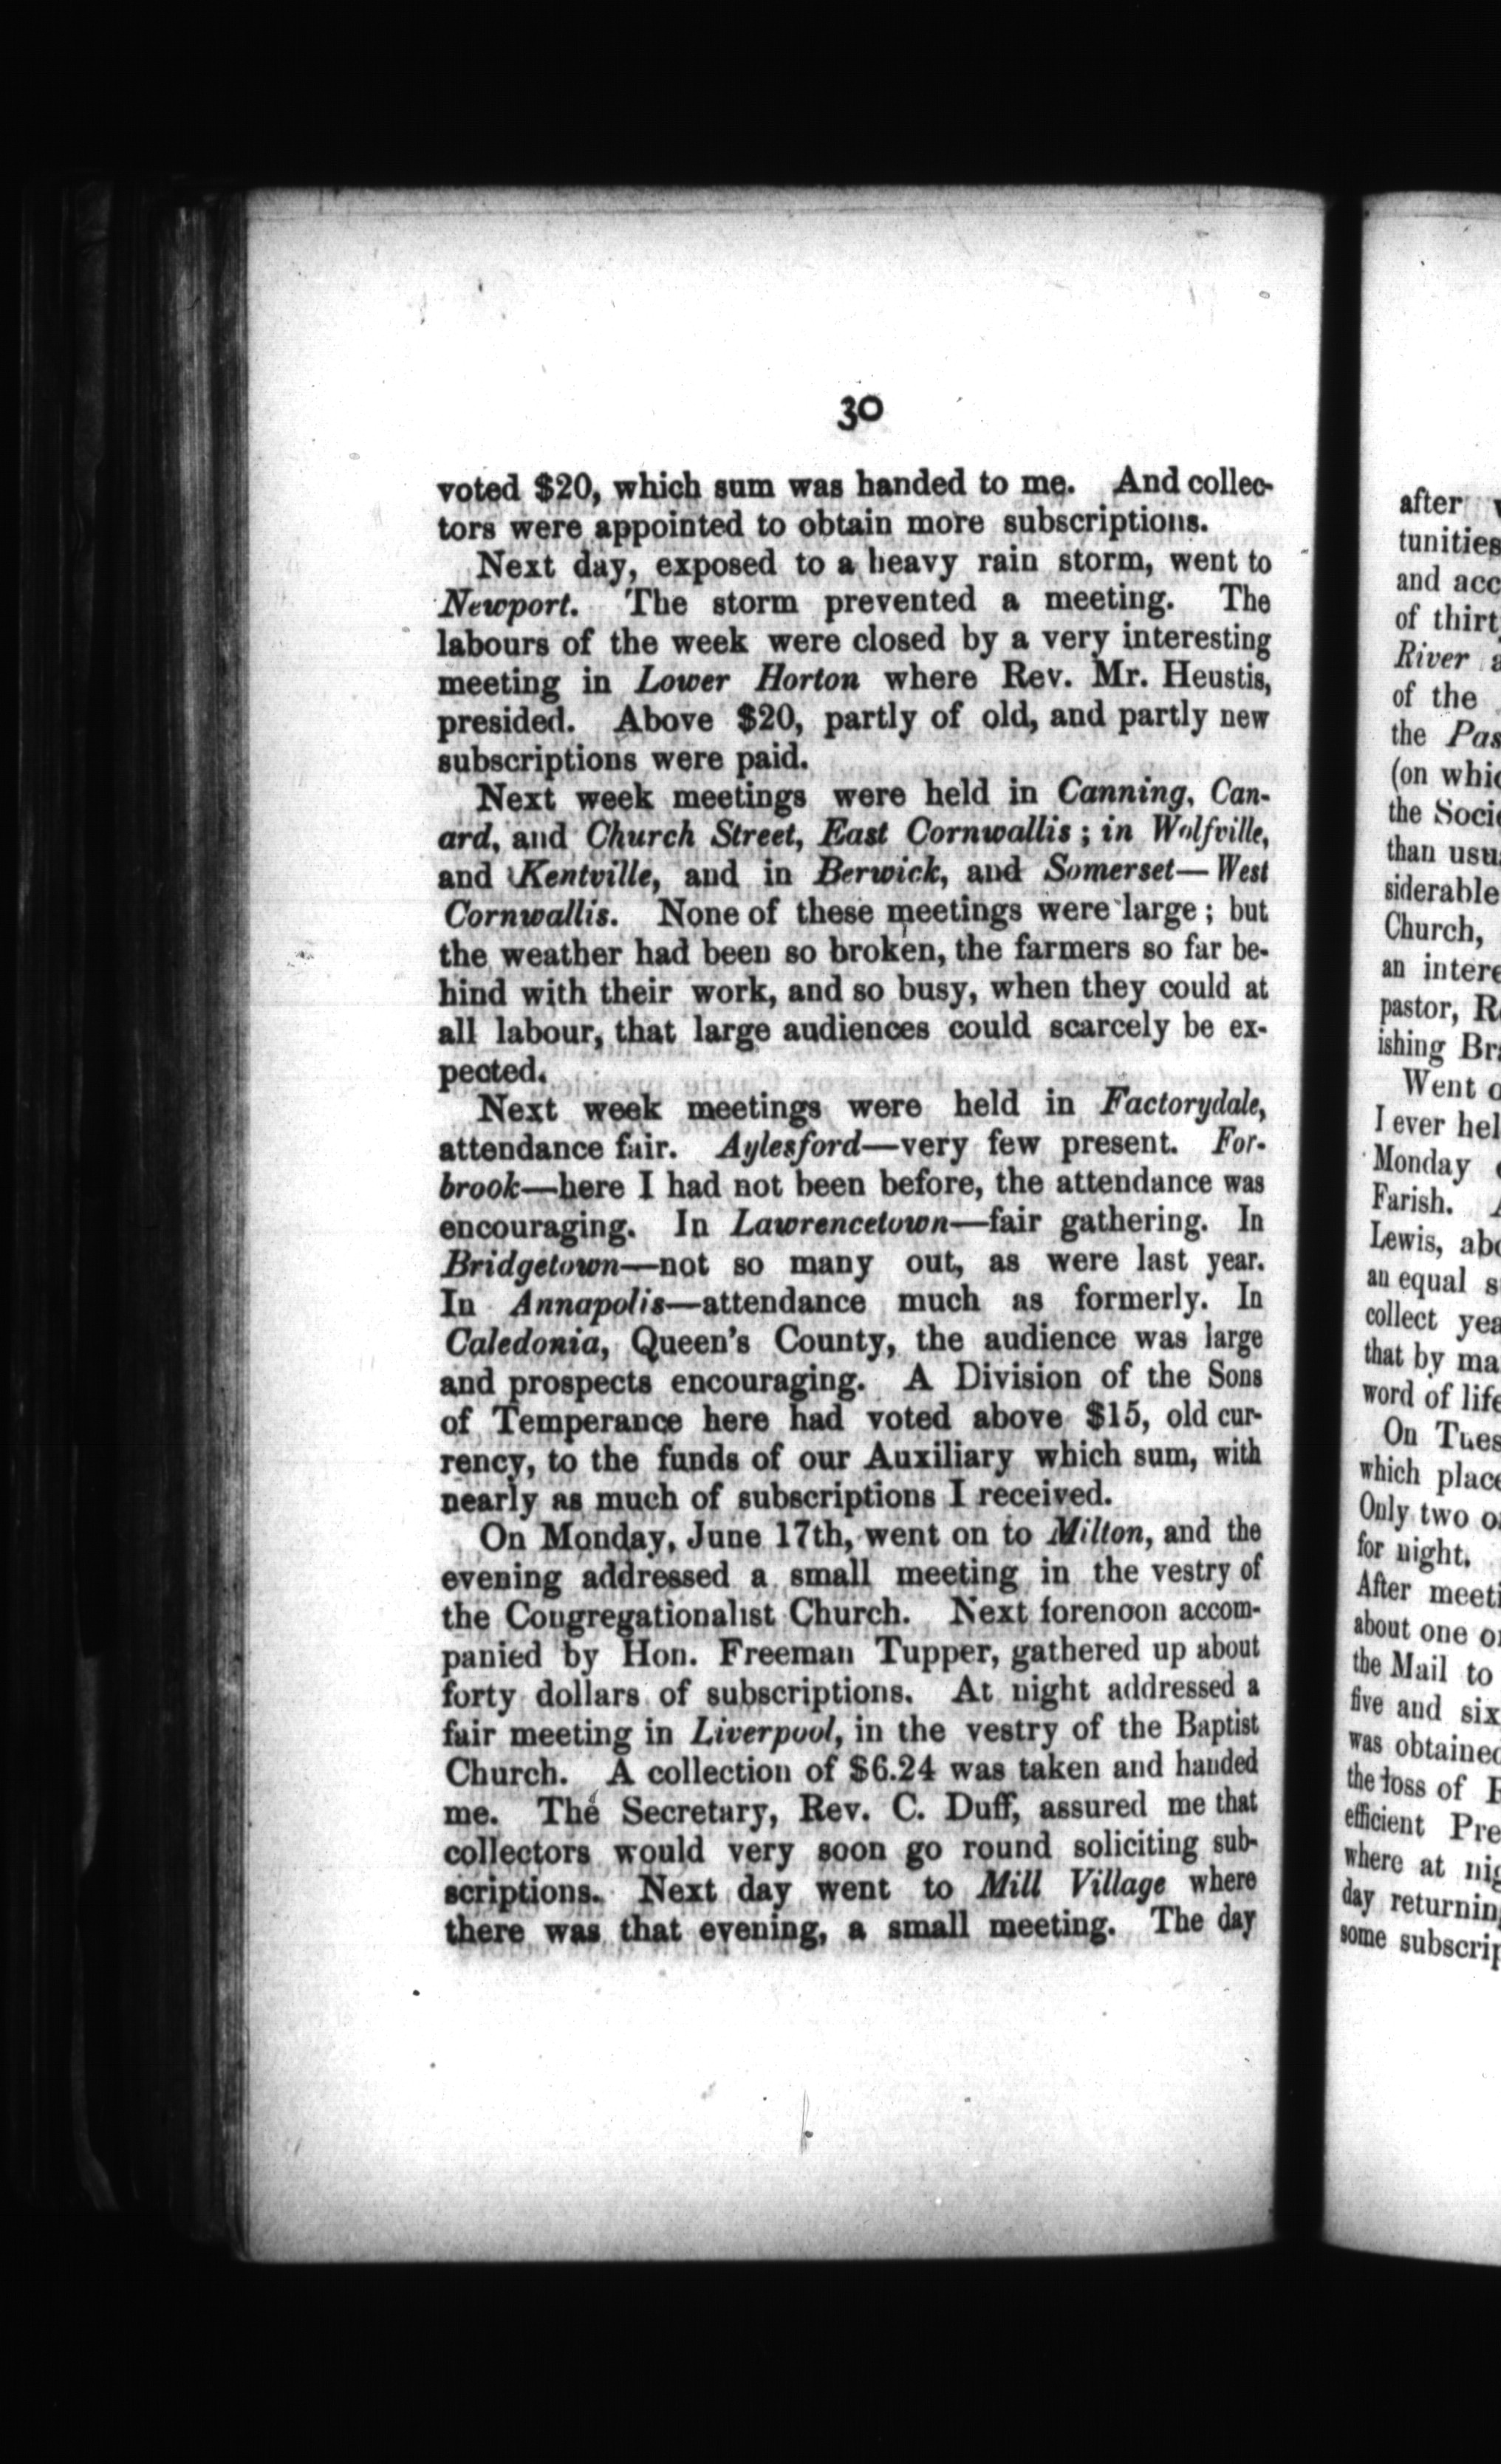 30
voted $20, which sum was handed to me. And collec-
tors were appointed to obtain more subscriptions.
Next day, exposed to a heavy rain storm, went to
Newport. The storm prevented a meeting. The
labours of the week were closed by a very interesting
meeting in Lower Horton where Rev. Mr. Heustis,
presided. Above $20, partly of old, and partly new
subscriptions were paid.
Next week meetings were held in Canning, Can-
ard, and Church Street, East Cornwallis; in Wolfville,
and Kentville, and in Berwick, and Somerset—West
Cornwallis. None of these meetings were large; but
the weather had been so broken, the farmers so far be-
hind with their work, and so busy, when they could at
all labour, that large audiences could scarcely be ex-
pected.
Next week meetings were held in Factorydale,
attendance fair. Aylesford—very few present. For-
brook—here I had not been before, the attendance was
encouraging. In Lawrencetown—fair gathering. In
Bridgetown—not so many out, as were last year.
In Annapolis—attendance much as formerly. In
Caledonia, Queen's County, the audience was large
and prospects encouraging. A Division of the Sons
of Temperance here had voted above $15, old cur-
rency, to the funds of our Auxiliary which sum, with
nearly as much of subscriptions I received.
On Monday, June 17th, went on to Milton, and the
evening addressed a small meeting in the vestry of
the Congregationalist Church. Next forenoon accom-
panied by Hon. Freeman Tupper, gathered up about
forty dollars of subscriptions. At night addressed a
fair meeting in Liverpool, in the vestry of the Baptist
Church. A collection of $6.24 was taken and handed
me. The Secretary, Rev. C. Duff, assured me that
collectors would very soon go round soliciting sub-
scriptions. Next day went to Mill Village where
there was that evening, a small meeting. The day
after
tunities
and acc
of thirt
River
of the
the Pas
(on whic
the Socie
than usu
siderable
Church,
an intere
pastor, R
ishing Br
Went
I ever hel
Monday
Farish.
Lewis, abo
an equal s
collect yea
that by ma
word of life
On Tues
which place
Only two o
for night.
After meeti
about one o
the Mail to
five and six
was obtained
the loss of
efficient Pre
where at nig
day returning
some subscrip